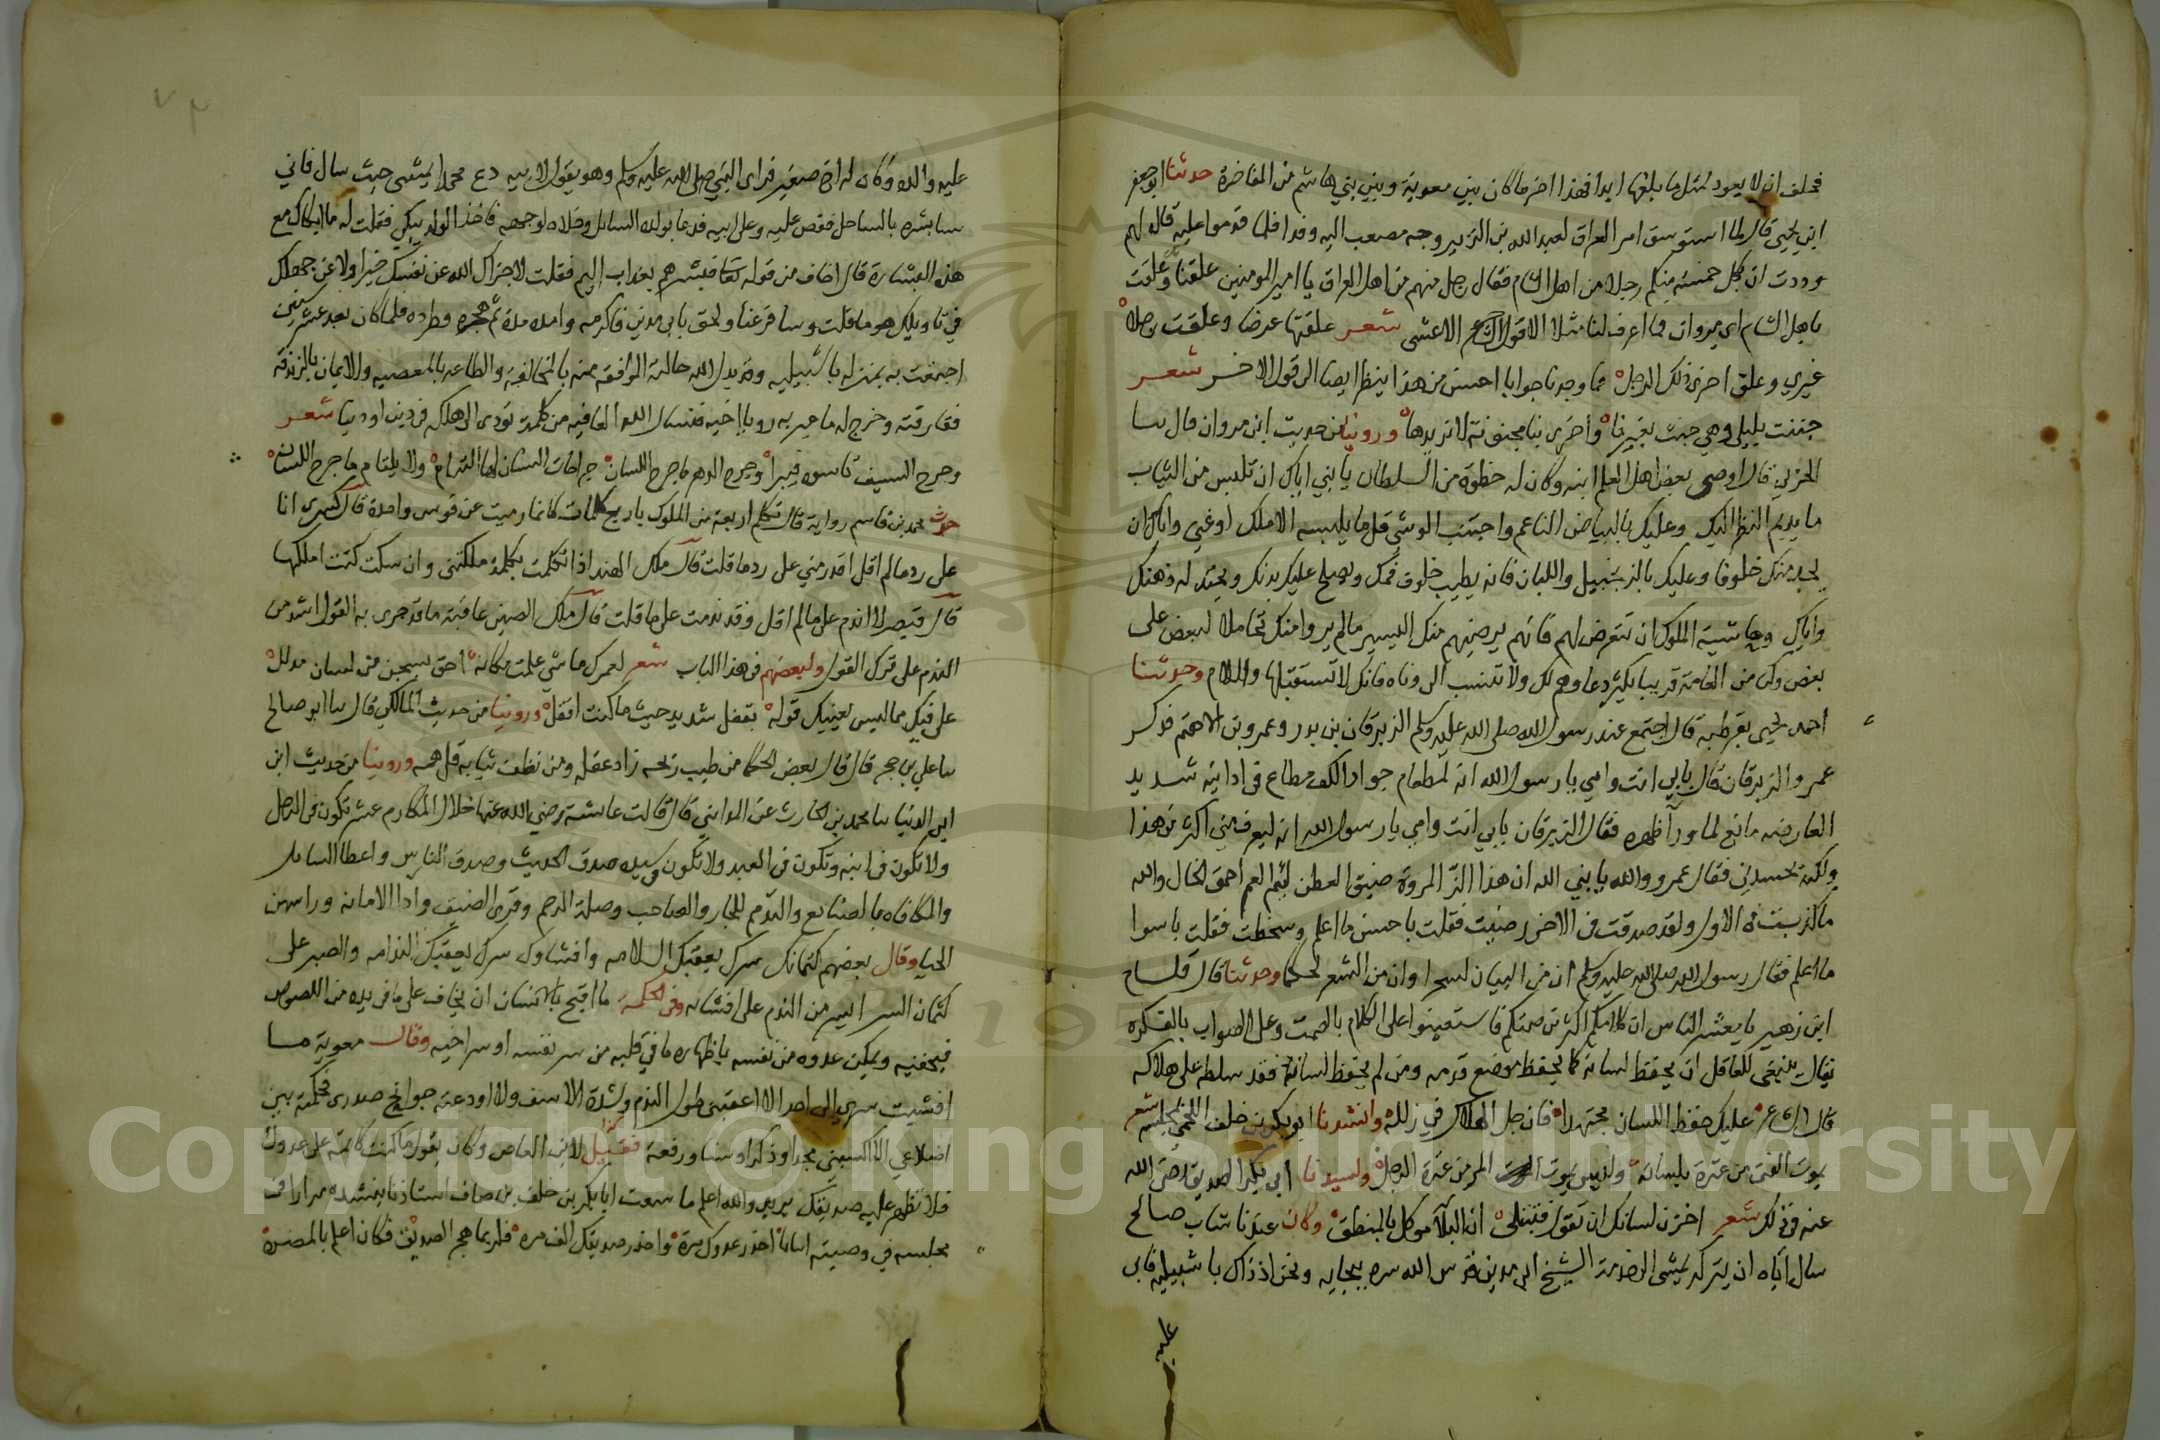 فحلف ان لا يعود لمثل ما بلغها ابدا فهذا اخر ما كان بين معوية وبين بني هاشم من المفاخرة حدثنا ابو جعفر
ابن يحيى قال لما استوسق امر العراق لعبد الله بن الزبير وجه مصعب اليه وفدا فلما قدموا عليه قال لهم
وددت ان بكل خمسة منكم رجلا من اهل الشام فقال رجل منهم من اهل العراق يا امير المومنين علقنا وعلقت
باهل الشام اى مروان فما اعرف لنا مثلا الا قول الاعشى شعر علقتها عرضا وعلقت رجلا
غيري وعلق اخرى ذلك الرجل فما وجدنا جوابا احسن من هذا ينظر ايضا الى قول الاخر شعر
جننت بليلى وهي جنت بغيرنا واخرى بنا مجنونة لا نريدها وروينا من حديث ابن مروان قال سا
الحربي قال اوصى بعض اهل العلم ابنه وكان له حظوة من السلطان يا بني اياك ان تلبس من الثياب
ما يديم النظر اليك وعليك بالبياض الناعم واجتنب الوشي قل ما يلبسه الا ملك او غبي واياك ان
يجد منك خلوفا وعليك بالزنجبيل واللبان فانه يطيب خلوف فمك ويصلح عليك بدنك ويحتد له ذهنك
واياك وحاشية الملوك ان تتعرض لهم فانهم يرضيهم منك اليسير مالم يروا منك تحاملا لبعض على
بعض وكن من العامة قريبا يكثر دعاوهم لك ولا تنسب الى وناه فانك لا تستقبلها والسلام وحدثنا
احمد يحيى بقرطبة قال اجتمع عند رسول الله صلى الله عليه وسلم الزبرقان بن بدر وعمرو بن الاهتم فذكر
عمرو الزبرقان قال بابي انت وامي يا رسول الله انه لمطعام جواد الكف مطاع في ادانيه شديد
العارضه مانع لما ورآ ظهره فقال الزبرقان بابي انت وامي يا رسول الله انه ليعرف مني اكثر من هذا
ولكنه يحسدني فقال عمرو والله يا نبي الله ان هذا الزّ المروة ضيق العطن لئيم العم احمق الخال والله
ما كذبت في الاول ولقد صدقت في الاخر رضيت فقلت باحسن ما اعلم وسخطت فقلت باسوا
ما اعلم فقال رسول الله صلى الله عليه وسلم ان من البيان لسحرا وان من الشعر لحكما وحدثنا قال قسام
ابن زهير يا معشر الناس ان كلامكم اكثر من صمتكم فاستعينوا على الكلام بالصمت وعلى الصواب بالفكره
يقال ينبغي للعاقل ان يحفظ لسانه كما يحفظ موضع قدمه ومن لم يحفظ لسانه فقد سلطه على هلاكه
قال الشاعر عليك حفظ اللسان مجتهدا فان جل الهلاك في زلله وانشدنا ابو بكر بن خلف اللخمي بمجلسه شعر
يموت الفتى من عثرة بلسانه وليس يموت المر من عثرة الرجل ولسيدنا ابي بكر الصديق رضى الله
عنه في ذلك شعر اخزن لسانك ان تقول فتبتلى ان البلآ موكل بالمنطق وكان عندنا شاب صالح
سال اباه ان يتركه يمشي الى خدمة الشيخ ابي مدين قدس الله سره ببجايه ونحن اذ ذاك باشبيلية فابى
عليه
عليه والده وكان له اخ صغير فراى النبي صلى الله عليه وسلم وهو يقول لابيه دع محمدا يمشي حيث سال فاني
سابشره بالساحل فقص عليه وعلى ابيه فدعا بولده السائل وخلاه لوجهه فاخذ الولد يبكي فقلت له ما ابكاك مع
هذه البشارة قال اخاف من قوله تعالى فبشرهم بعذاب اليم فقلت لا جزاك الله عن نفسك خيرا ولا عن جهلك
في تاويلك هو ما قلت وسافر عنا ولحق بابي مدين فاكرمه وامده مدة ثم هجره وطرده فلما كان بعد عشر سنين
اجتمعت به بمنزله باشبيليه وقد بدل الله حالته الموافقه منه بالمخالفة والطاعه بالمعصيه والايمان بالزندقة
ففارقته وخرج له ما عبر به رويا اخيه فنسال الله العافيه من كلمة تودى الى هلاك في دين او دنيا شعر
وجرح السيف تاسوه فيبرا وجرح الدهر ما جرح اللسان جراحات السنان لها التيام ولا يلتام ما جرح اللسان
حدث محمد بن قاسم رواية قال تكلم اربعة من الملوك باربع كلمات كانما رميت عن قوس واحدة قال كسرى انا
على رد مالم اقل اقدر مني على رد ما قلت قال ملك الهند اذا تكلمت بكلمة ملكتني وان سكت كنت املكها
قال قيصر لا اندم على مالم اقل وقد ندمت على ما قلت قال ملك الصين عاقبة ما قد جرى به القول اشد من
الندم على ترك القول ولبعضهم في هذا الباب شعر لعمرك ما شي علمت مكانه احق بسجن من لسان مدلل
على فيك مما ليس يعنيك قوله بقفل شديد حيث ما كنت اقفل وروينا من حديث المالكي قال سا ابو صالح
سا علي بن حجر قال قال بعض الحكما من طيب ريحه زاد عقله ومن نظف ثيابه قل همه وروينا من حديث ابن
ابي الدنيا سا محمد بن الحارث عن المدايني قال قالت عائشة رضي الله عنها خلال المكارم عشر تكون في الرجل
ولا تكون في ابنه وتكون في العبد ولا تكون في سيده صدق الحديث وصدق الناس واعطا السائل
والمكافاه بالصنايع والتذمم للجار والصاحب وصلة الرحم وقرى الضيف وادا الامانه وراسهن
الحيا وقال بعضهم كتمانك سرك يعقبك السلامه وافشاوك سرك يعقبك الندامه والصبر على
كتمان السر ايسر من الندم على افشائه وفي الحكمة ما اقبح بالانسان ان يخاف على ما في يده من اللصوص
فيخفيه ويمكن عدوه من نفسه باظهاره ما في قلبه من سر نفسه او سر اخيه وقال معوية ما
افشيت سري الى احد الا اعقبني طول الندم وشدة الاسف ولا اودعته جوانح صدرى فحكمته بين
اضلاعي الا اكسبني مجدا وذكرا وسنا ورفعة فقيل له ولا ابن العاص قال ولا ابن العاص وكان يقول ما كنت كاتمه على عدوك
فلا تظهر عليه صديقك يريد والله اعلم ما سمعت ابا بكر بن خلف بن صاف استاذنا ينشده مرارا في
مجلسه في وصيته ايانا احذر عدوك مرة واحذر صديقك الف مره فلربما هجر الصديق فكان اعلم بالمضرة